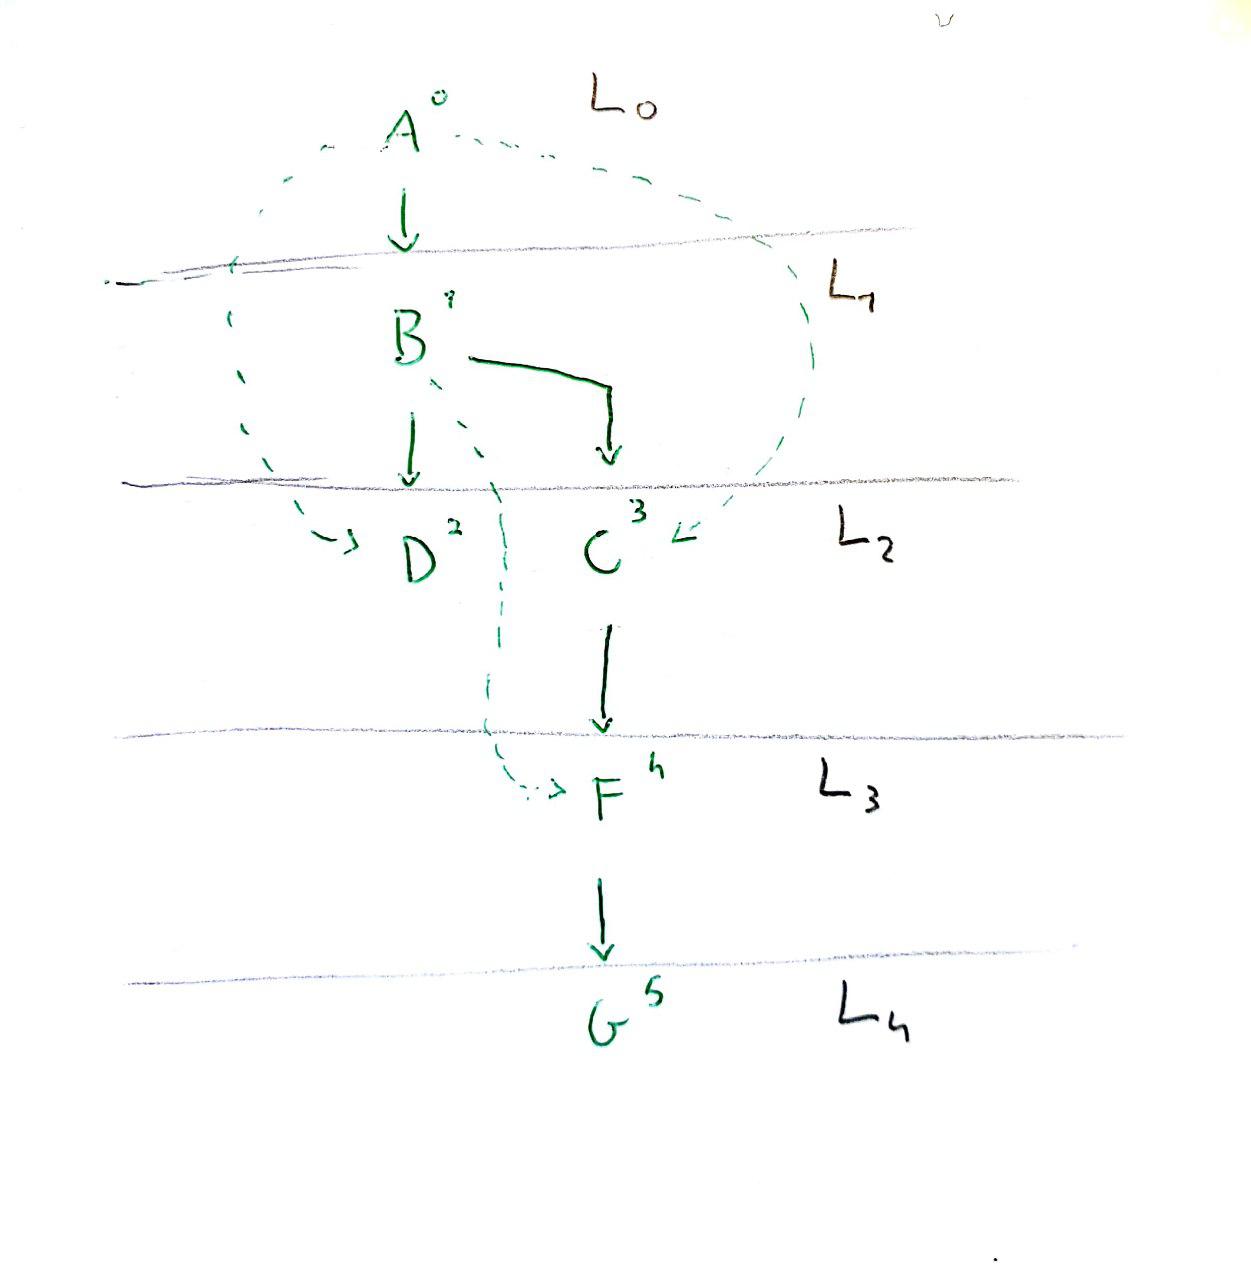 A⁰ L₀
L₁
B¹
D² C³ L₂
F⁴ L₃
G⁵ L₄